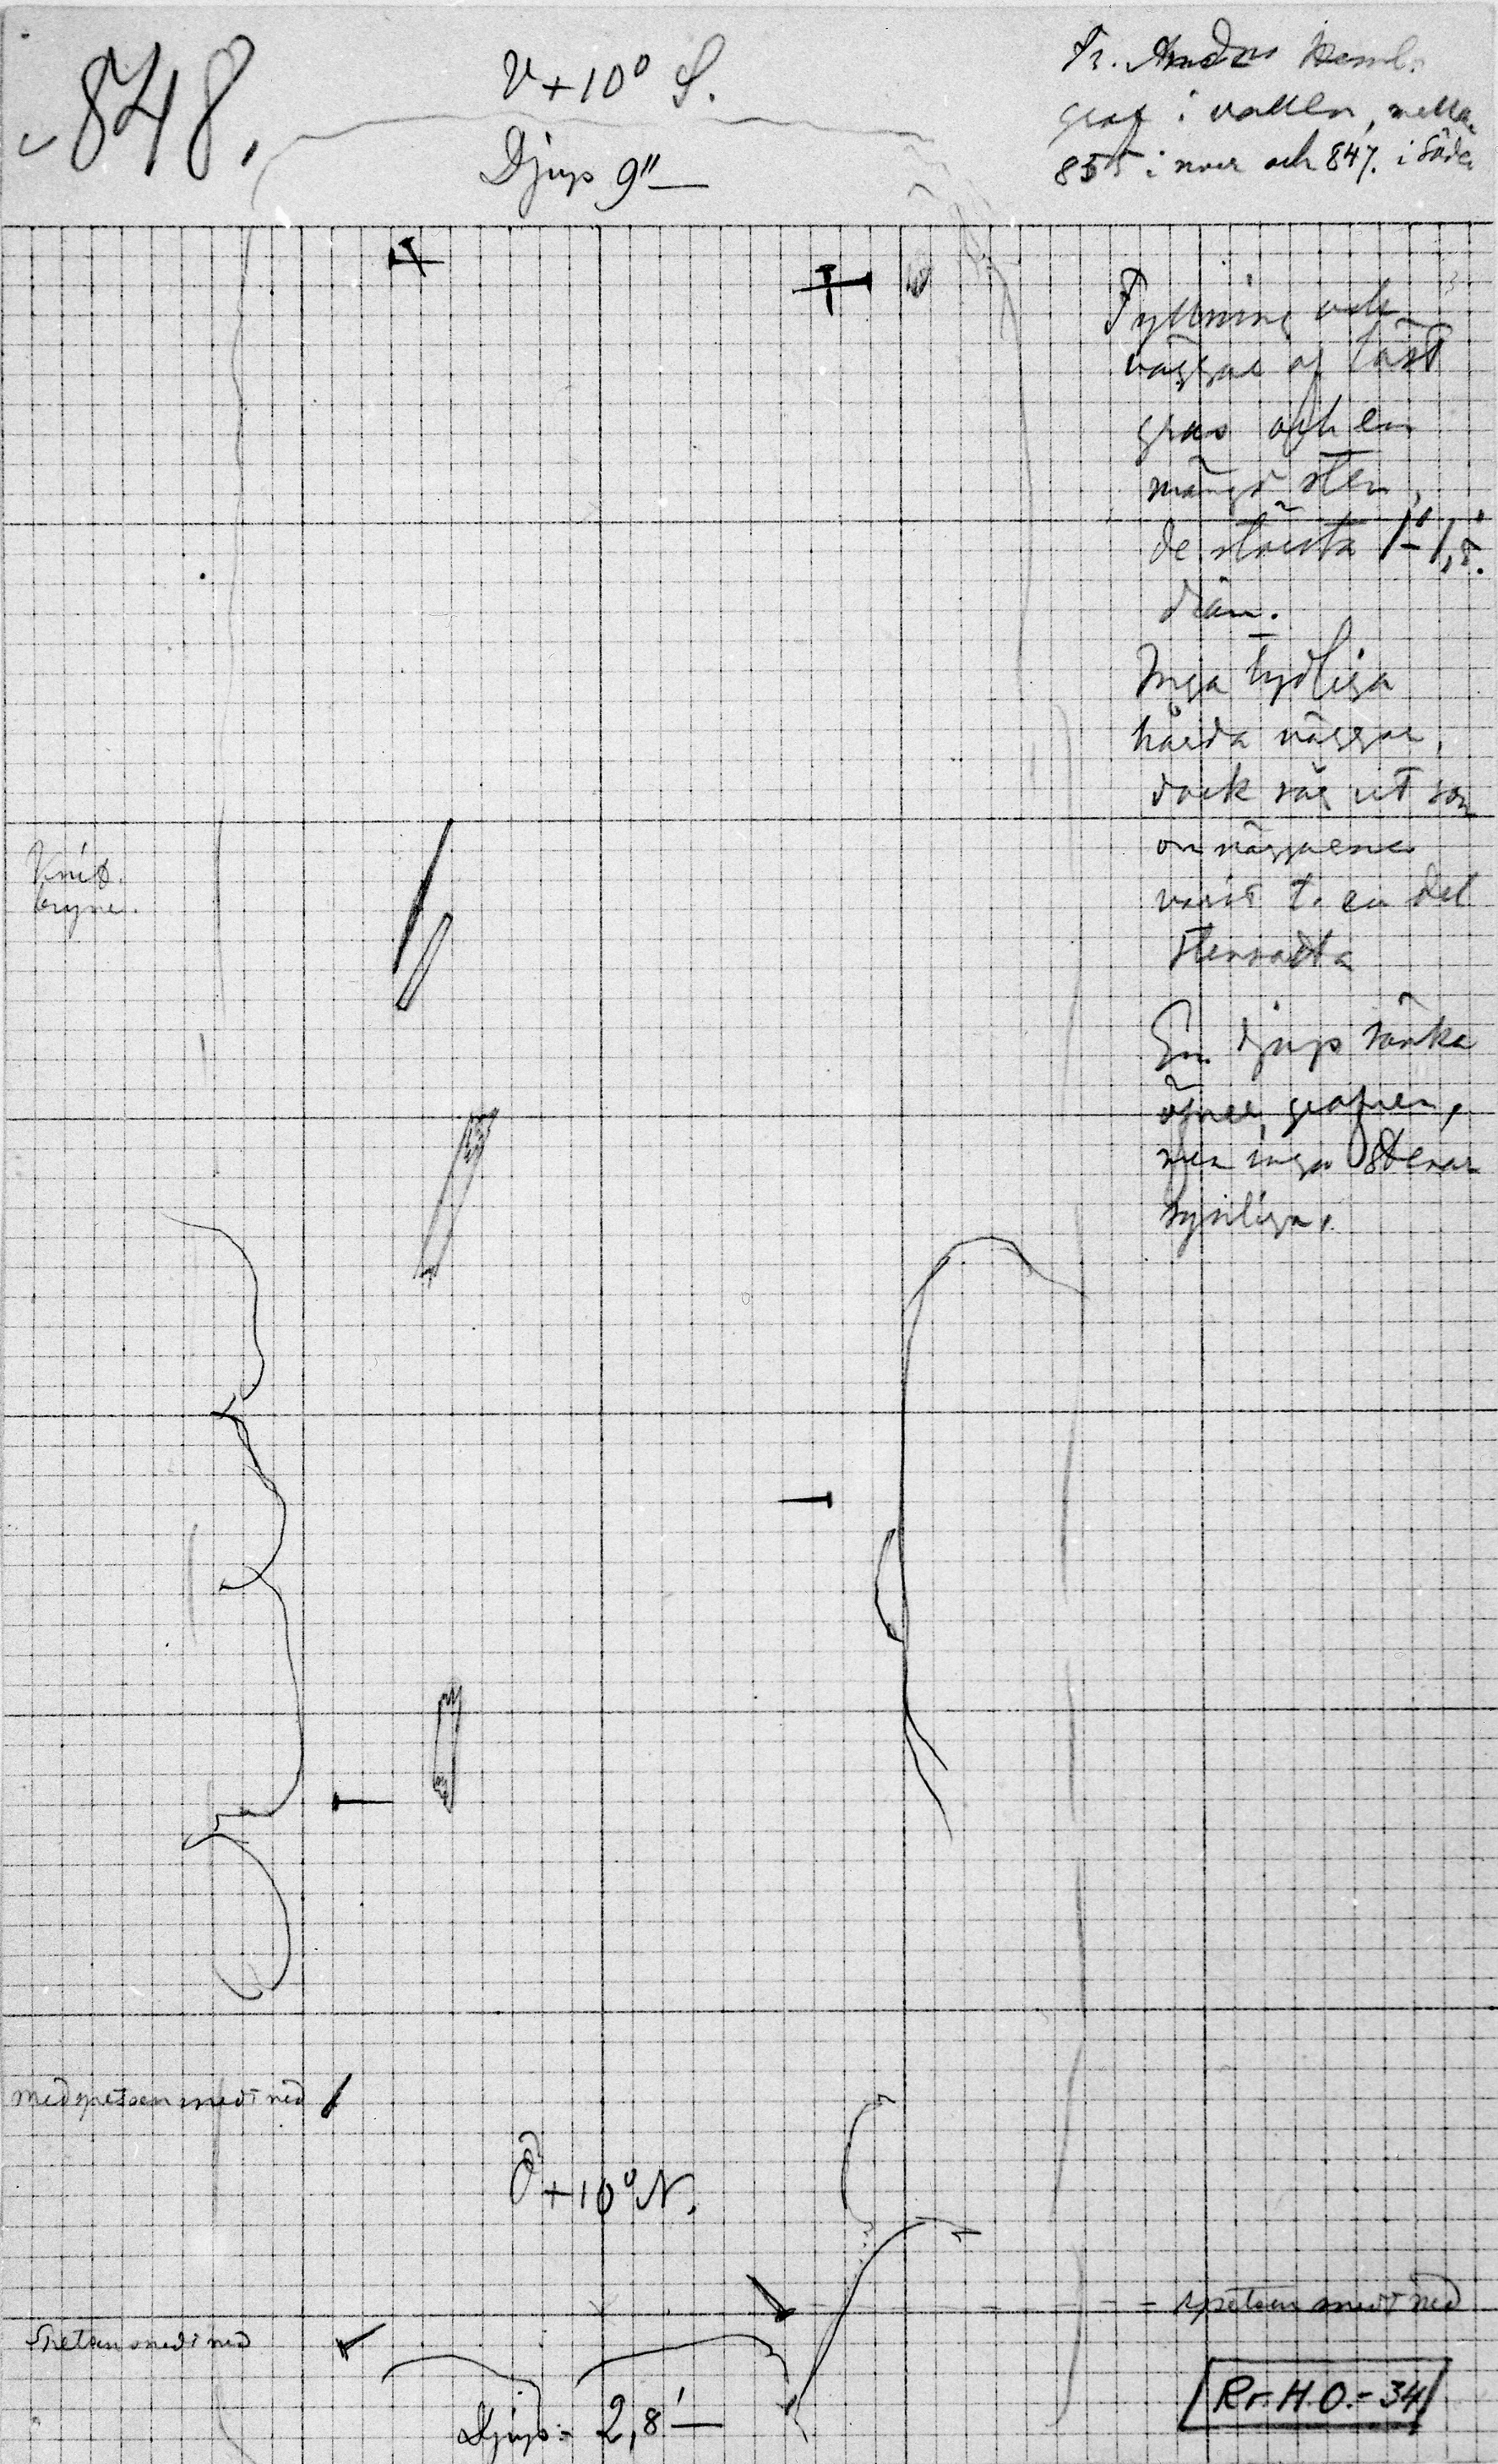 848.
V+10° S.
Djup 9"
Fr. Andra
graf i vallen, mellan
855 i norr och 847. i söder
Fyllning och
väggar af löst
grus och en
mängd sten,
de största 1'-1,5'.
diam.
Inga tydliga
hårda väggar,
dock såg ut som
om väggarna
varit t. en del
stensatta
En djup sänka
öfver grafven,
men inga stenar
synliga.
Knif.
bryne.
med spetsen snedt ned
Ö+10° N.
spetsen snedt ned
Spetsen snedt ned
Djup = 2,8'
Rr. H O.- 34